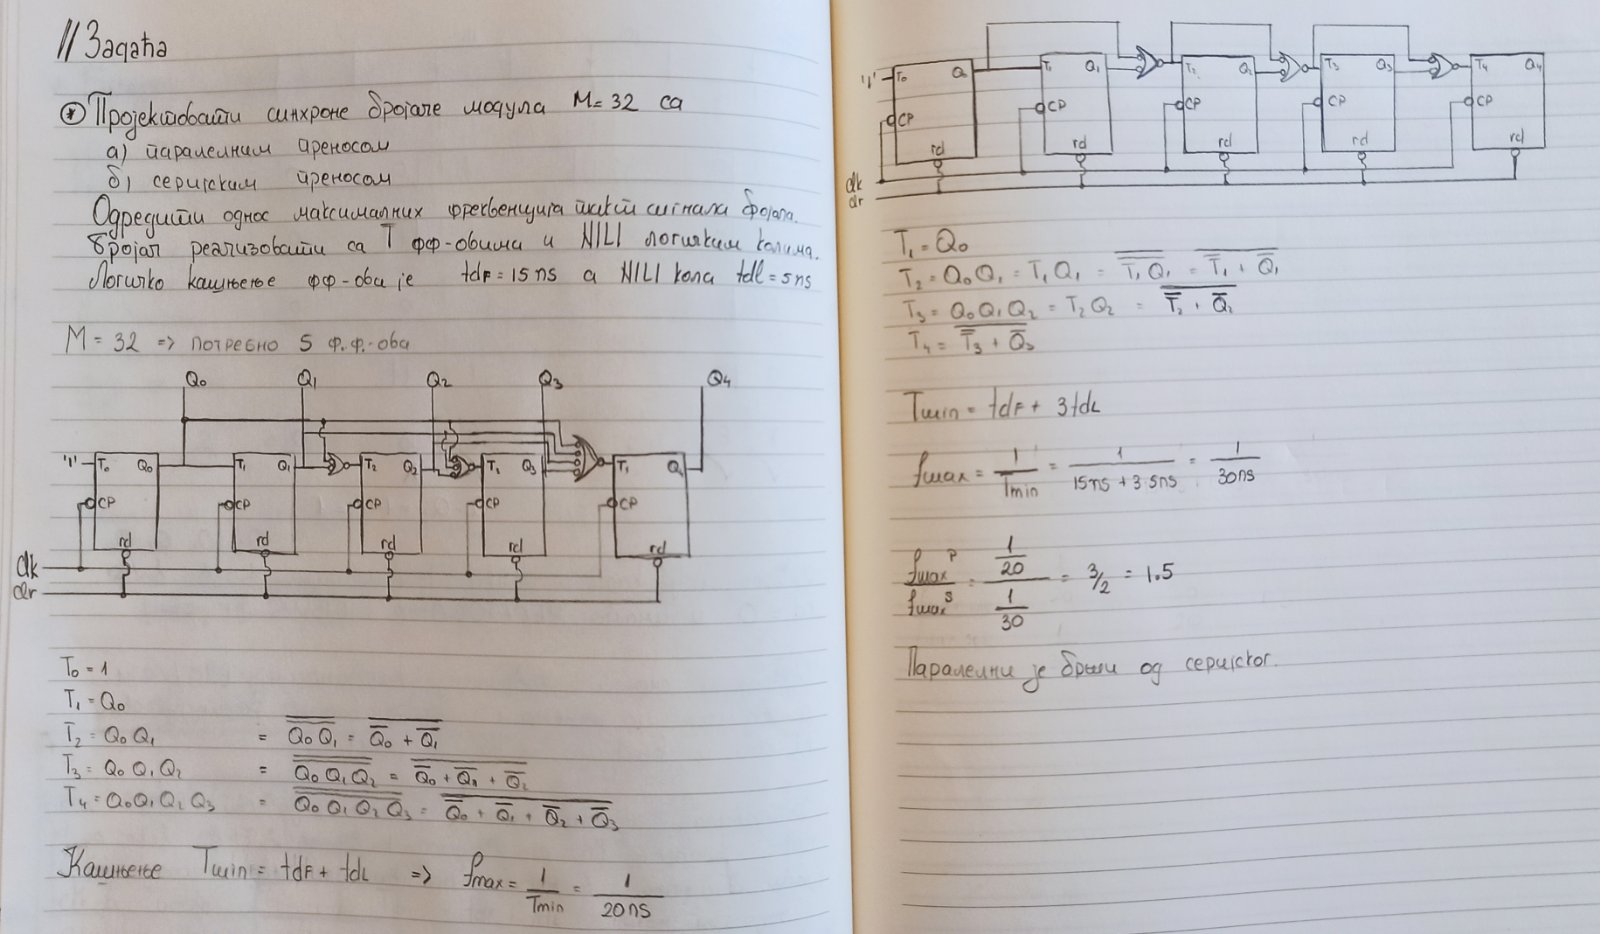 11 Задаћа
⊛ Пројектовати синхроне бројаче модула M = 32 са
а) паралелним преносом
б) серијским преносом
Одредити однос максималних фреквенција такт сигнала бројача.
Бројач реализовати са T фф-овима и NILI логичким колима.
Логичко кашњење фф-ова је tdF = 15 ns а NILI кола tdl = 5 ns
M = 32 => потребно 5 ф.ф.-ова
Q0 Q1 Q2 Q3 Q4
'1' T0 Q0 T1 Q1 T2 Q2 T2 Q3 T1 Q
CP CP CP CP CP
rd rd rd rd rd
clk
clr
T0 = 1
T1 = Q0
T2 = Q0 Q1 = \overline{\overline{Q0 Q1}} = \overline{\overline{Q0} + \overline{Q1}}
T3 = Q0 Q1 Q2 = \overline{\overline{Q0 Q1 Q2}} = \overline{\overline{Q0} + \overline{Q1} + \overline{Q2}}
T4 = Q0 Q1 Q2 Q3 = \overline{\overline{Q0 Q1 Q2 Q3}} = \overline{\overline{Q0} + \overline{Q1} + \overline{Q2} + \overline{Q3}}
Кашњење Tmin = tdF + tdL => fmax = 1/Tmin = 1/20 ns
'1' T0 Q0 T1 Q1 T2 Q2 T3 Q3 T4 Q4
CP CP CP CP CP
rd rd rd rd rd
clk
clr
T1 = Q0
T2 = Q0 Q1 = T1 Q1 = \overline{\overline{T1 Q1}} = \overline{\overline{T1} + \overline{Q1}}
T3 = Q0 Q1 Q2 = T2 Q2 = \overline{\overline{T2} + \overline{Q2}}
T4 = \overline{\overline{T3} + \overline{Q3}}
Tmin = tdF + 3tdL
fmax = 1/Tmin = 1/(15ns + 3 5ns) = 1/30ns
fmax^P / fmax^S = (1/20) / (1/30) = 3/2 = 1.5
Паралелни је бржи од серијског.